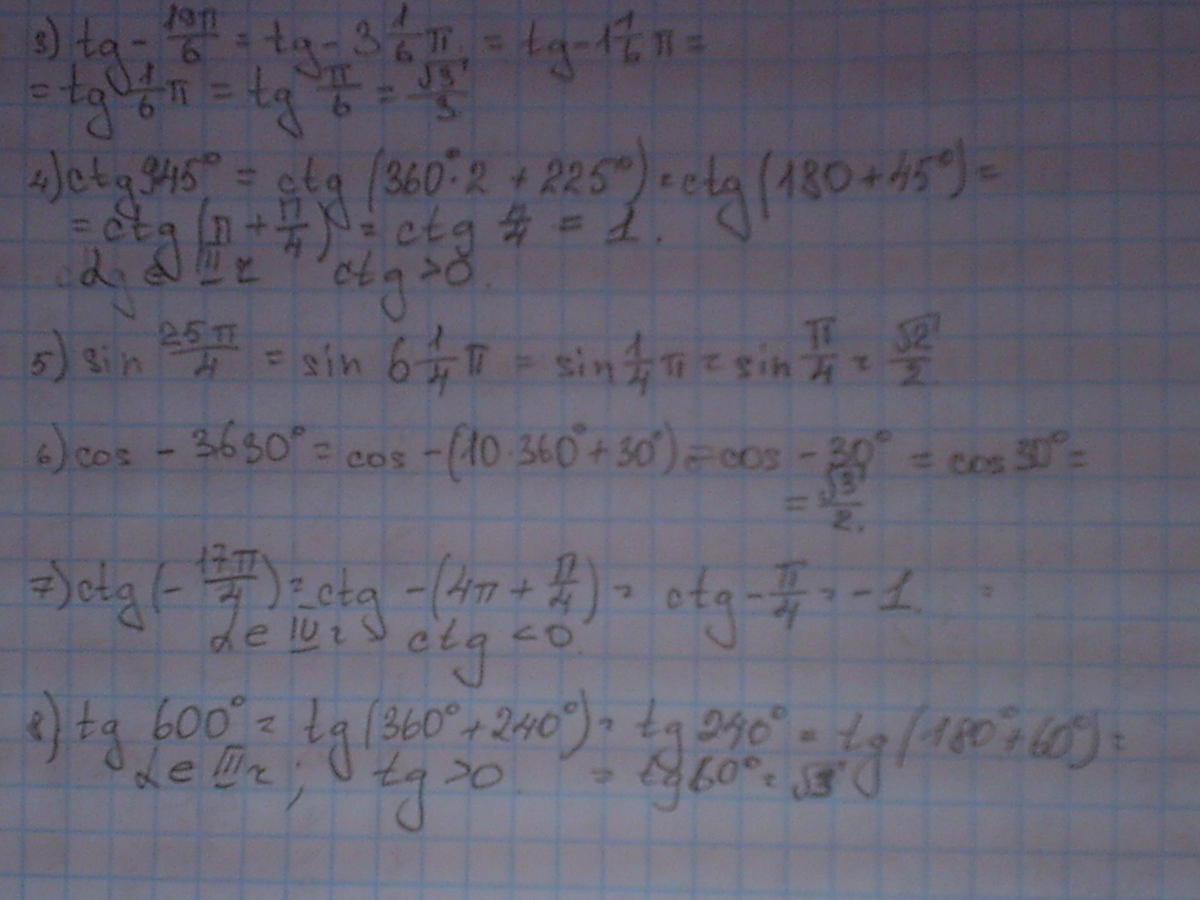 3) tg - 19π/6 = tg - 3 1/6 π = tg - 1 1/6 π =
= tg 1/6 π = tg π/6 = √3/3
4) ctg 945° = ctg (360°·2 + 225°) = ctg (180 + 45°) =
= ctg (π + π/4) = ctg π/4 = 1.
α ∈ III г ctg > 0.
5) sin 25π/4 = sin 6 1/4 π = sin 1/4 π = sin π/4 = √2/2
6) cos - 3630° = cos - (10·360° + 30°) = cos - 30° = cos 30° =
= √3/2.
7) ctg (- 17π/4) = ctg - (4π + π/4) = ctg - π/4 = -1. =
α ∈ IV г ctg < 0.
8) tg 600° = tg (360° + 240°) = tg 240° = tg (180° + 60°) =
α ∈ III г ; tg > 0 = tg 60° = √3